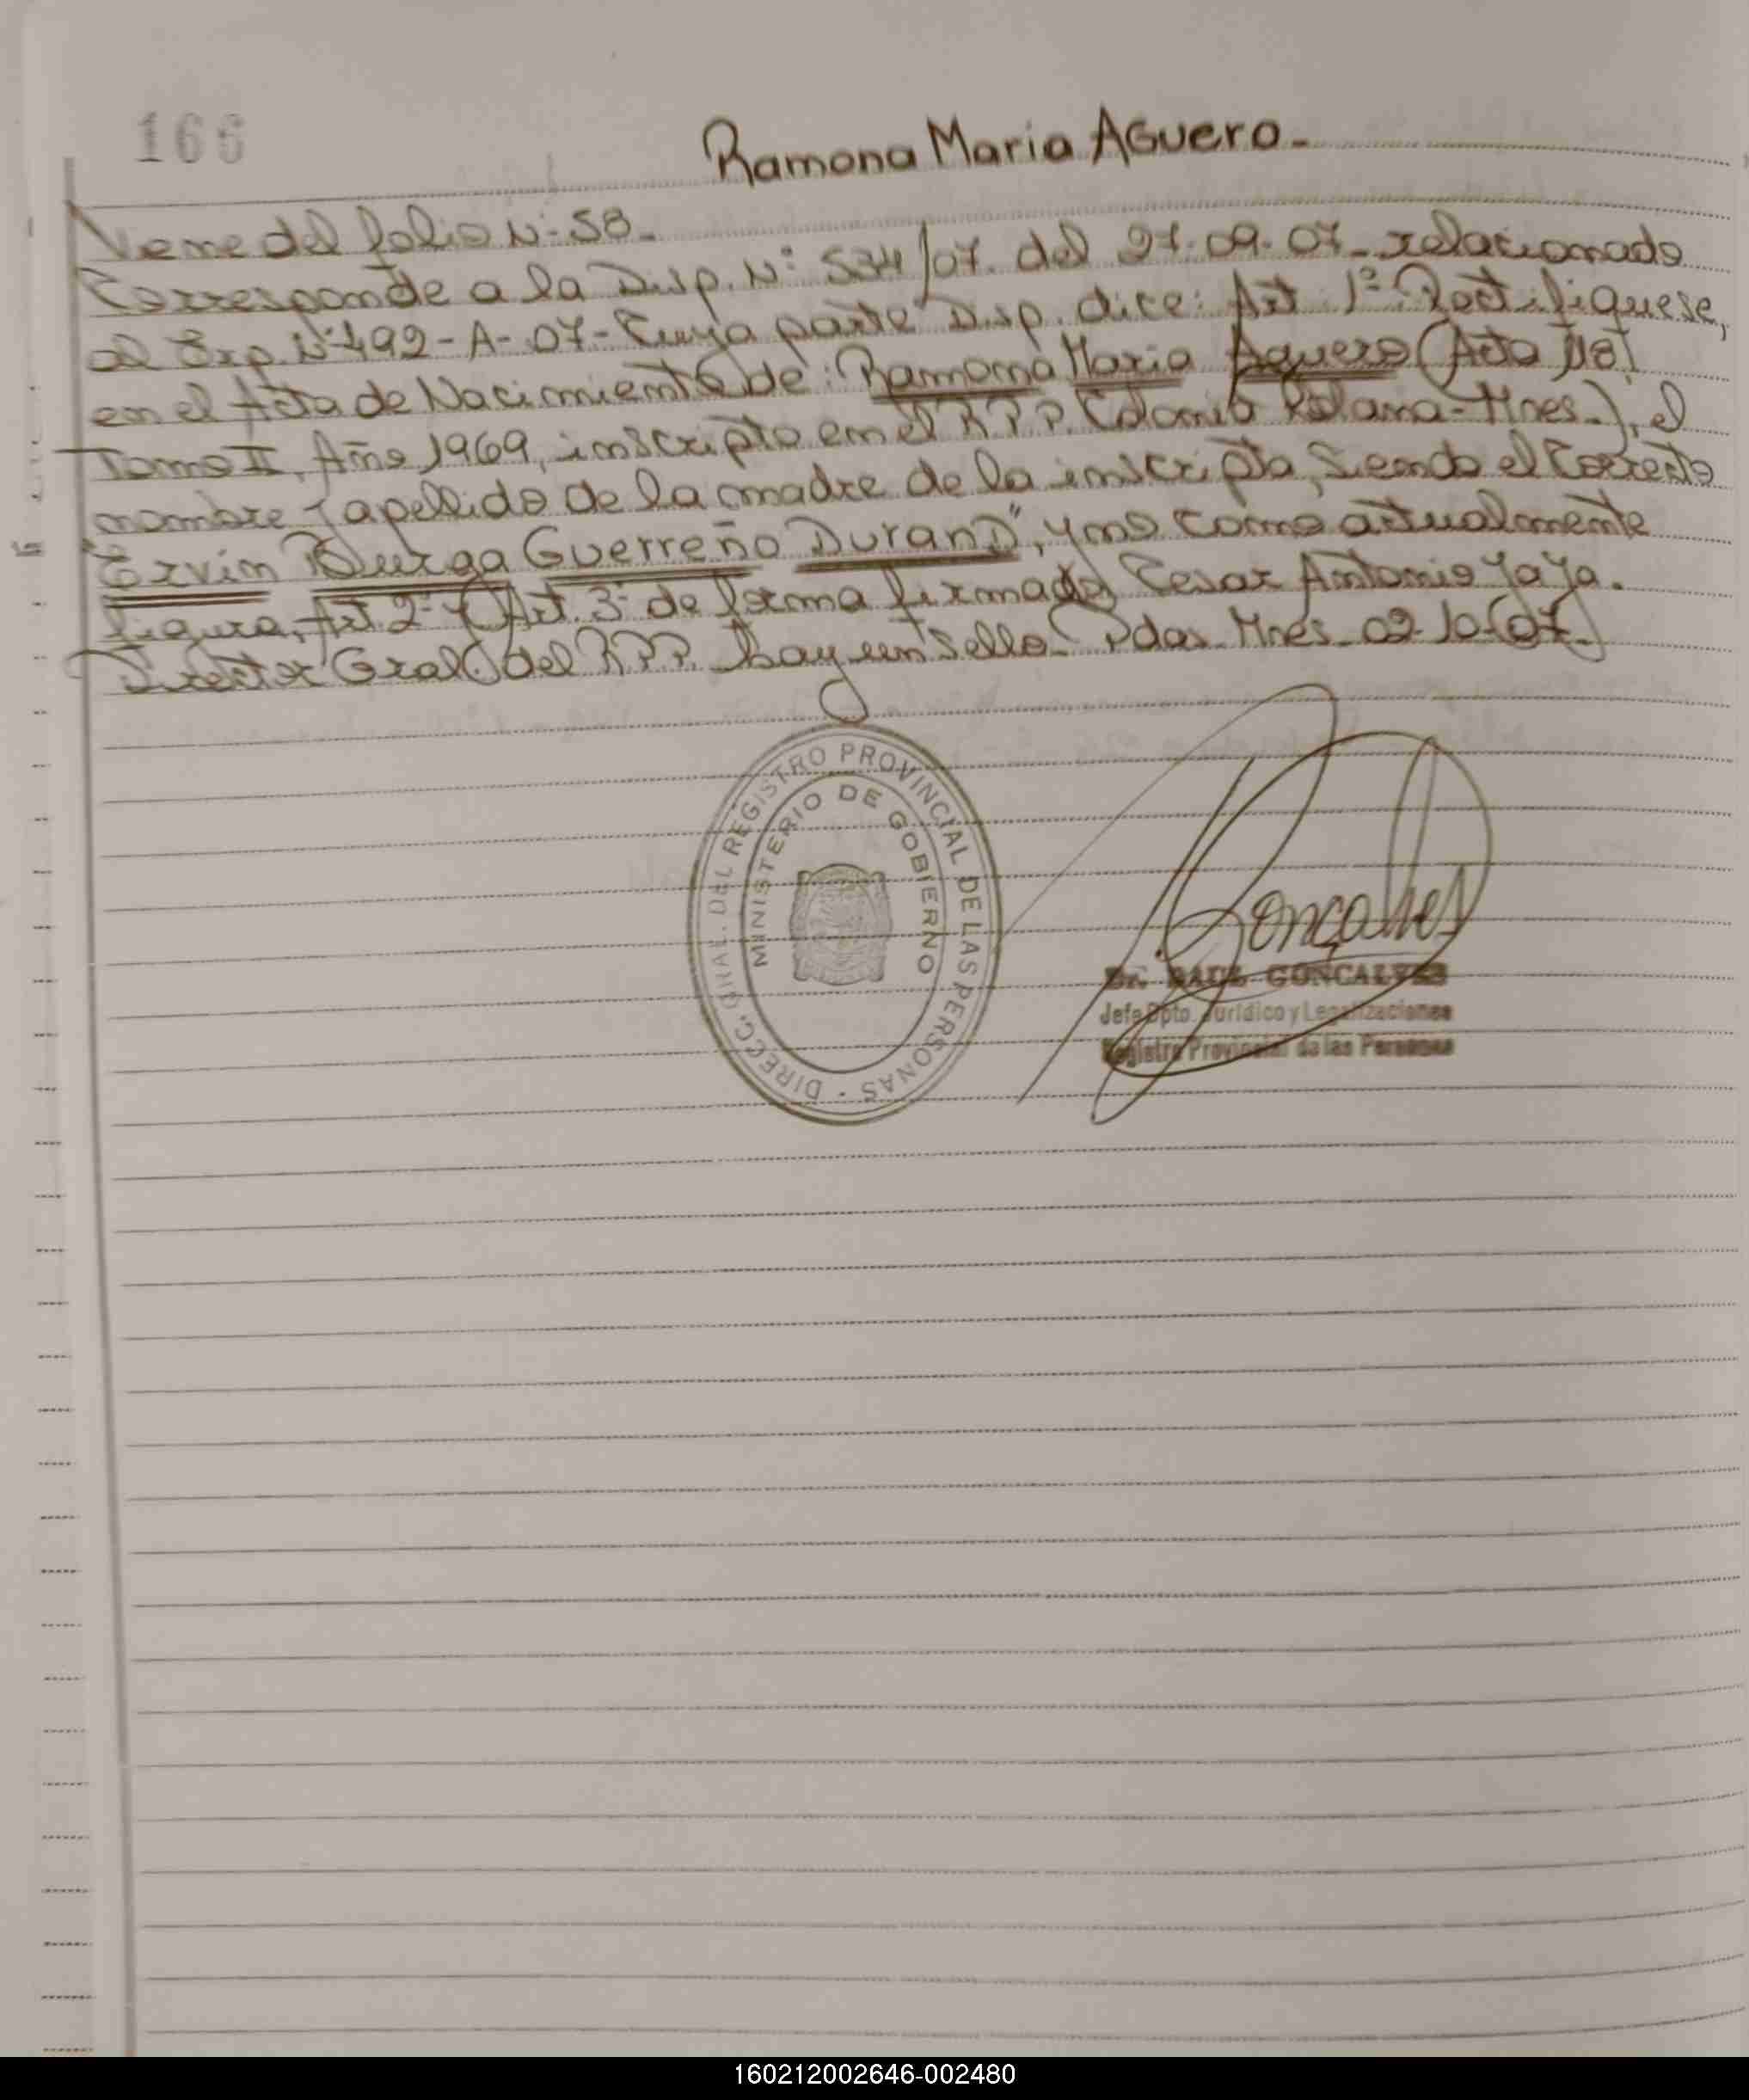 166
Ramona Maria Aguero.-
Viene del folio N° 58.-
Corresponde a la Disp. N° 534/07. del 27.09.07- relacionado
al Exp. N° 492-A-07- Cuya parte Disp. dice: Art 1° Rectifiquese,
en el Acta de Nacimiento de: Ramona Maria Aguero (Acta 118,
Tomo II, Año 1969, inscripto en el R.P.P. Colonia Mnes.-), el
nombre y apellido de la madre de la inscripta, Siendo el Correcto
"Ervin Burga Guerreño Durand", y no como actualmente
figura, Art 2° y Art. 3° de forma firmado Cesar Antonio Yaya.
Director Gral. del R.P.P. hay un Sello- Pdas. Mnes. 02-10-07.
DIRECC. GRAL. DEL REGISTRO PROVINCIAL DE LAS PERSONAS -
MINISTERIO DE GOBIERNO
Goncalves
Dr. RAUL GONCALVES
Jefe Dpto. Jurídico y Legalizaciones
Registro Provincial de las Personas
160212002646-002480